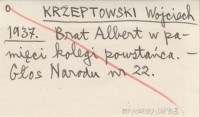 o KRZEPTOWSKI Wojciech
1937. Brat Albert w pa-
mięci kolegi powstańca. –
Głos Narodu nr 22.